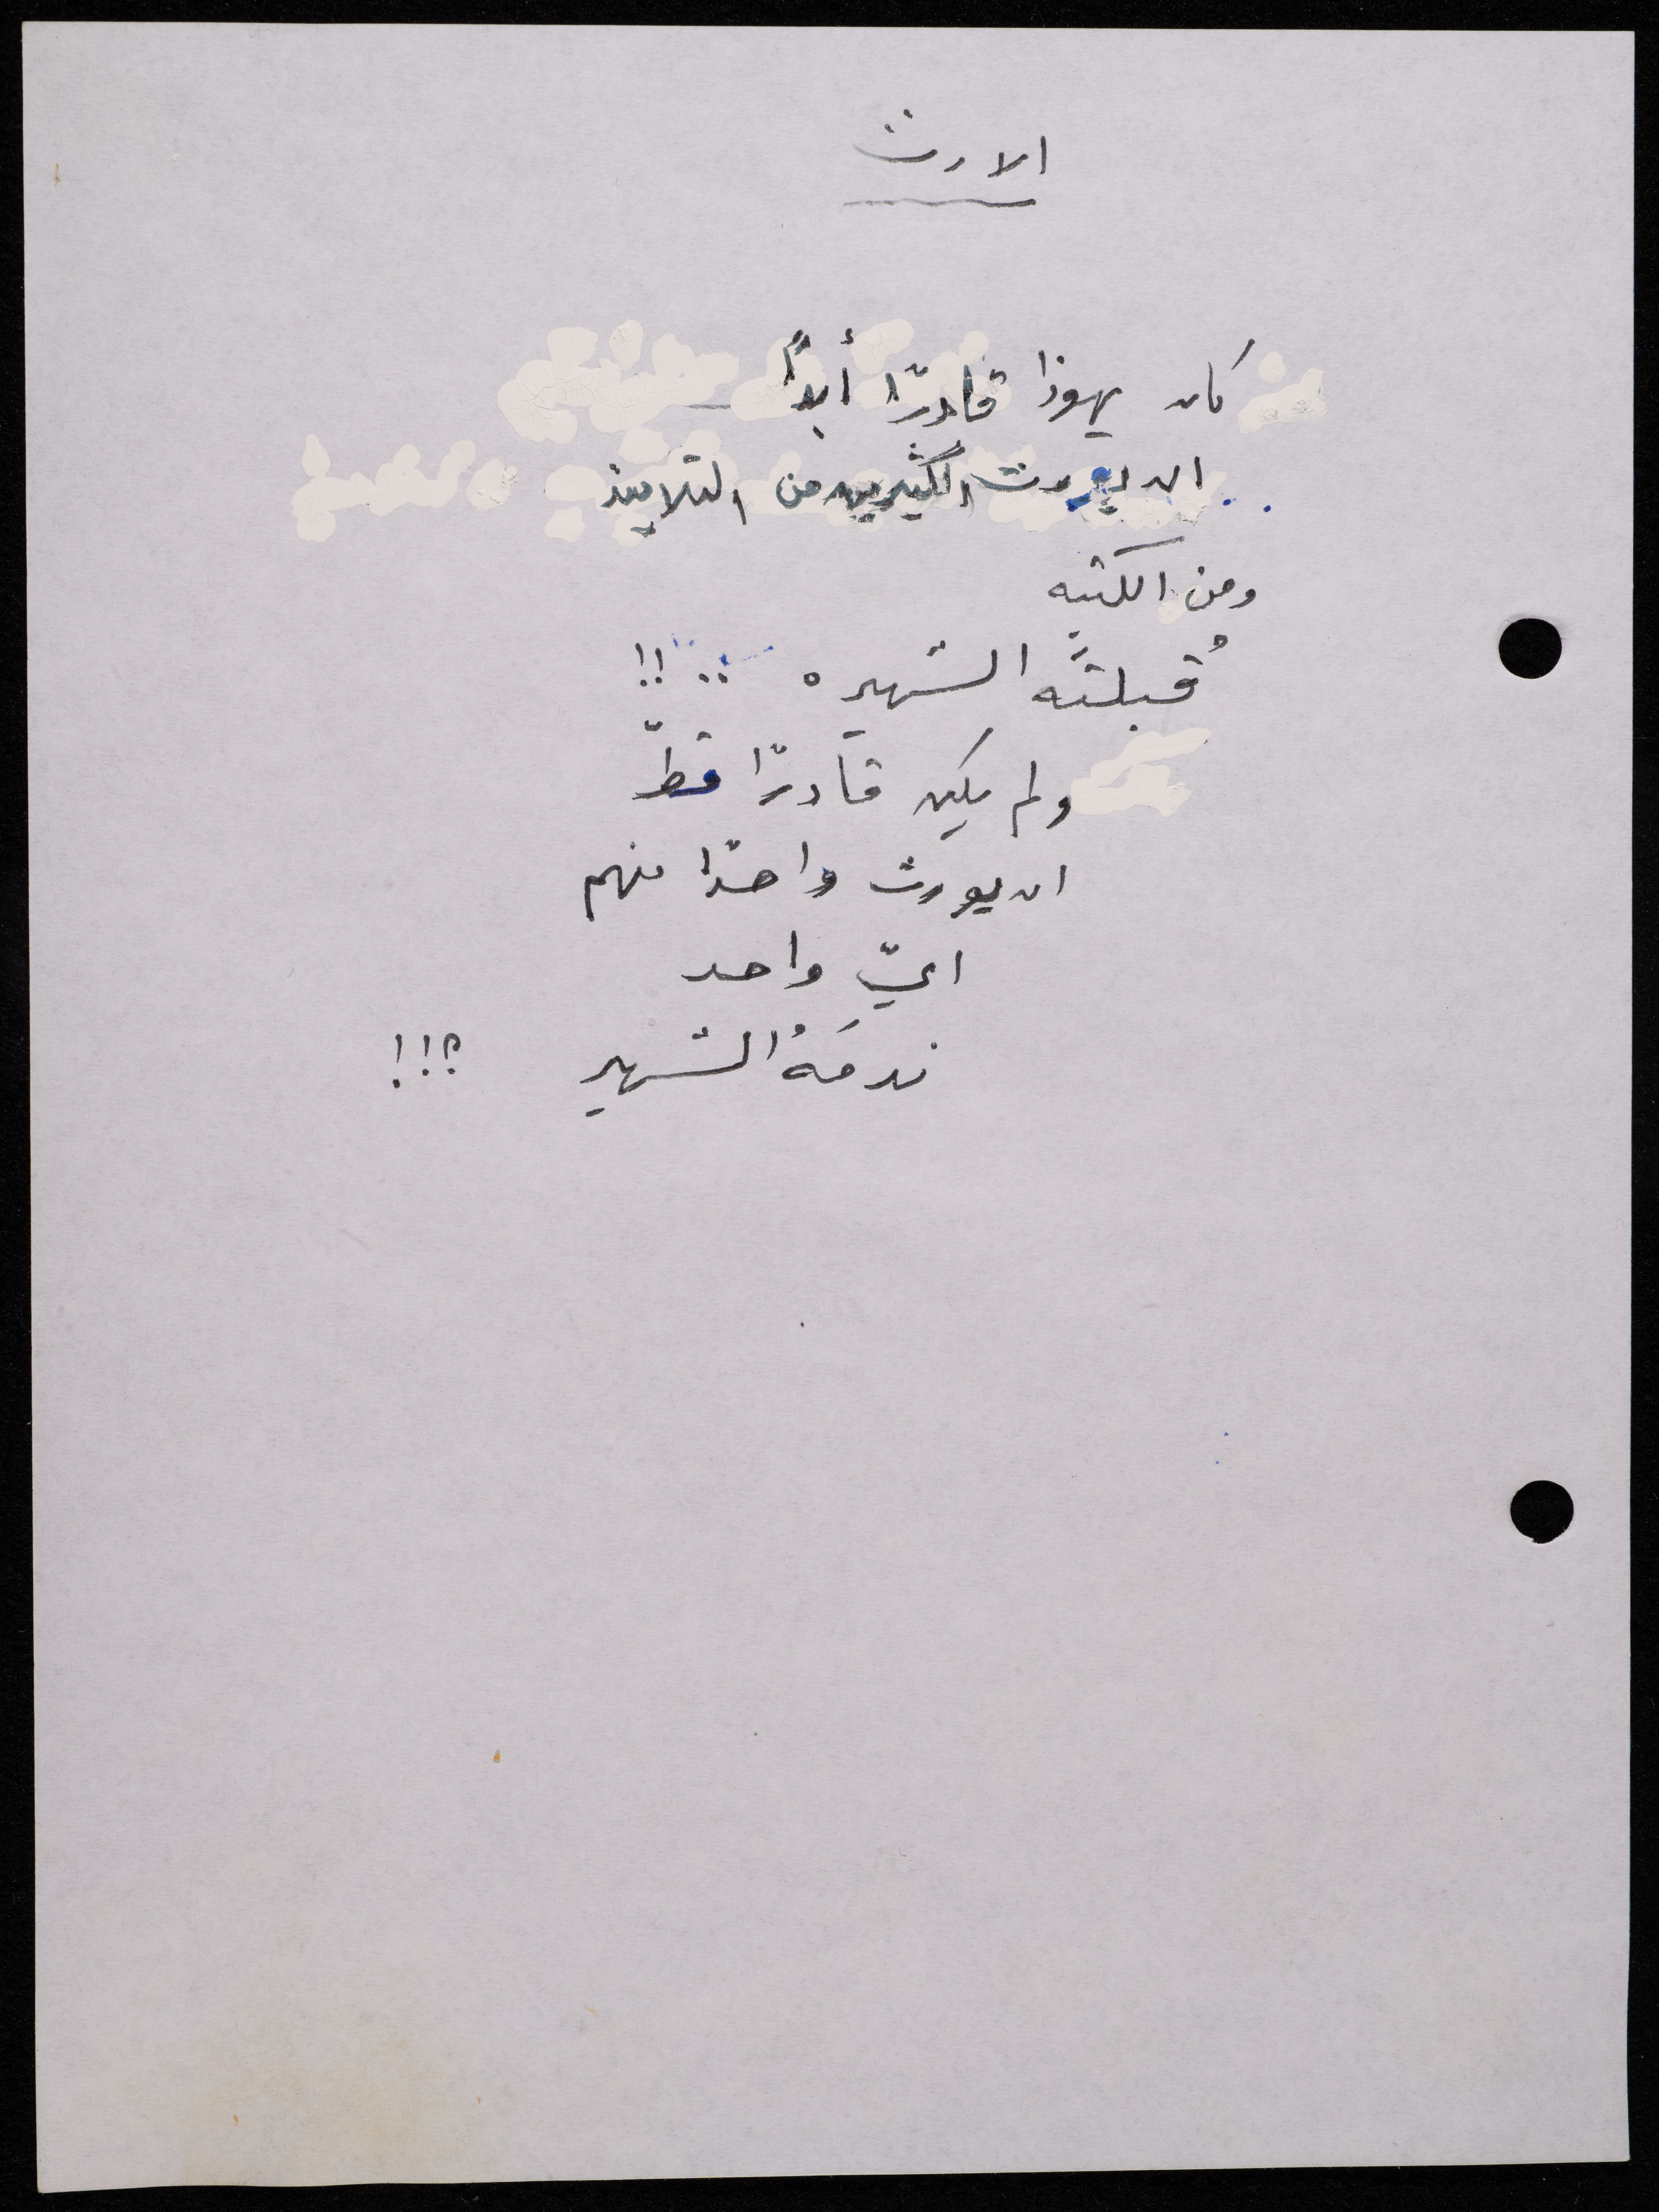 الارث
كان يهوذا قادرًا أبدًا
.. ان يورث الكثيرين من التلاميذ
ومن الكتبه
قُبلتَه الشهيره .. !!
ولم يكن قادرًا قطّ
ان يورث واحدًا منهم
ايّ واحد
ندمَهُ الشهير ؟!!